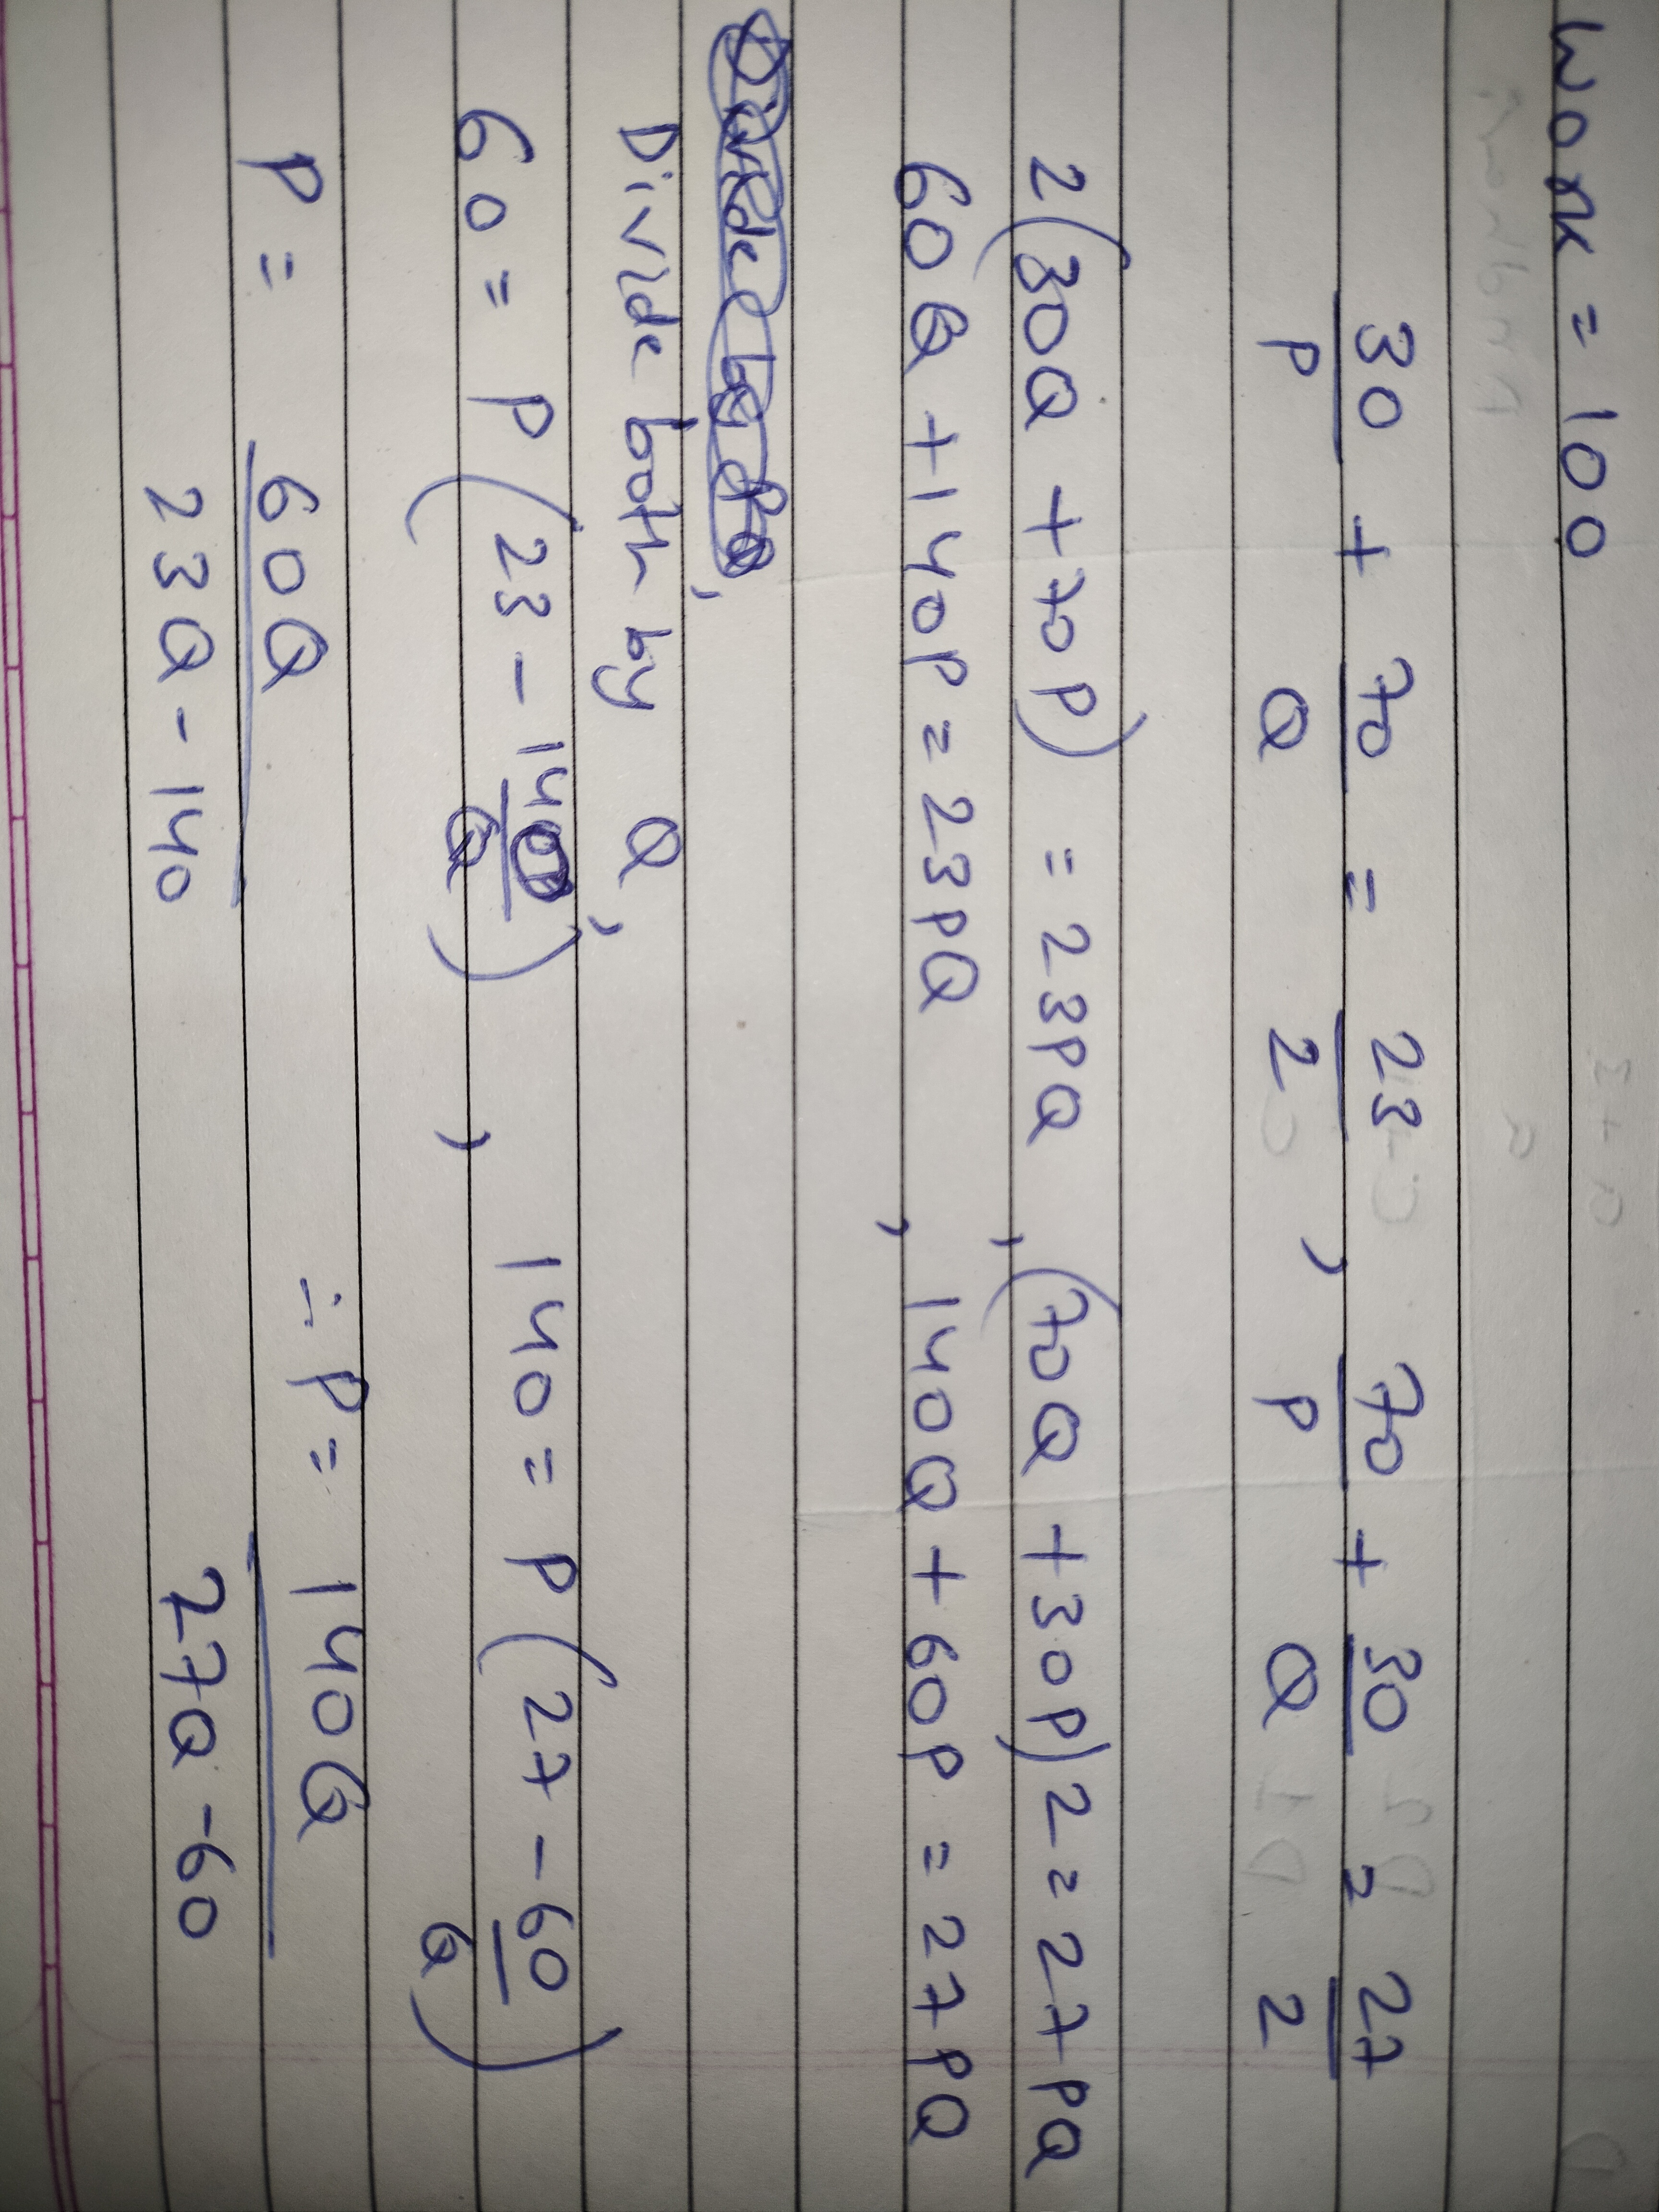 Work = 100
30/P + 70/Q = 23/2 , 70/P + 30/Q = 27/2
2(30Q + 70P) = 23PQ , (70Q + 30P)2 = 27PQ
60Q + 140P = 23PQ , 140Q + 60P = 27PQ
Divide both by Q,
60 = P(23 - 140/Q) , 140 = P(27 - 60/Q)
P = 60Q/23Q - 140 ∴ P = 140Q/27Q - 60